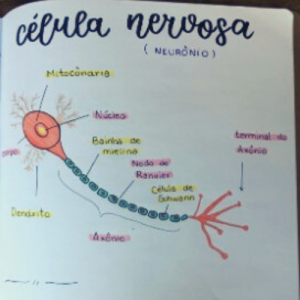 célula nervosa
(NEURÔNIO)
Mitocôndria
Núcleo
Bainha de
mielina
terminal do
Axônio
Nodo de
Ranvier
Célula de
Schwann
Dendrito
Axônio